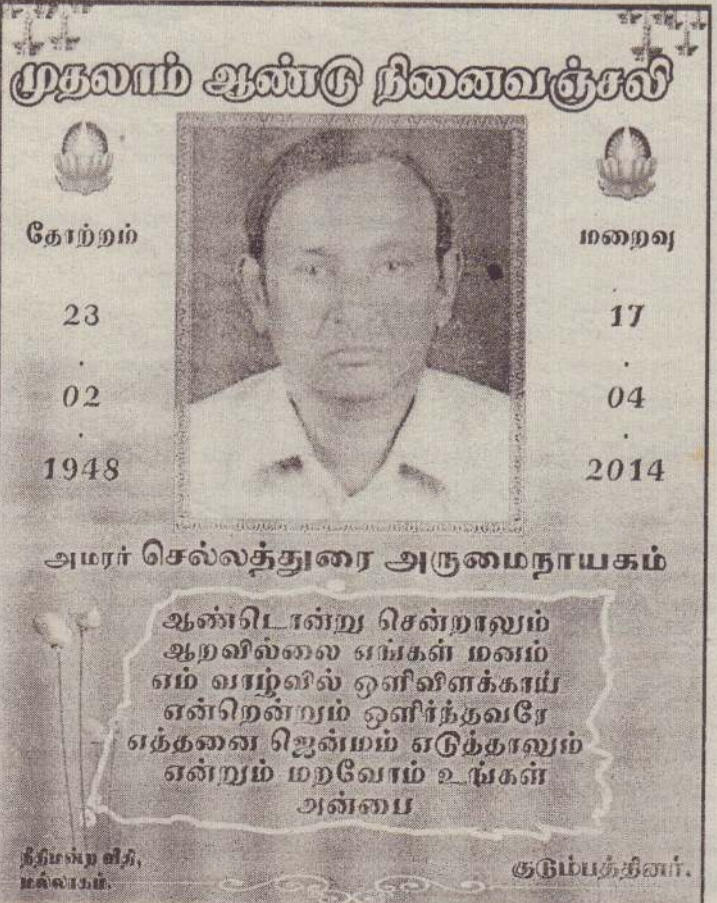 முதலாம் ஆண்டு நினைவஞ்சலி
தோற்றம்
23
.
02
.
1948
மறைவு
17
.
04
.
2014
அமரர் செல்லத்துரை அருமைநாயகம்
ஆண்டொன்று சென்றாலும்
ஆறவில்லை எங்கள் மனம்
எம் வாழ்வில் ஒளிவிளக்காய்
என்றென்றும் ஒளிர்ந்தவரே
எத்தனை ஜென்மம் எடுத்தாலும்
என்றும் மறவோம் உங்கள்
அன்பை
நீதிமன்ற வீதி,
மல்லாகம்.
குடும்பத்தினர்.